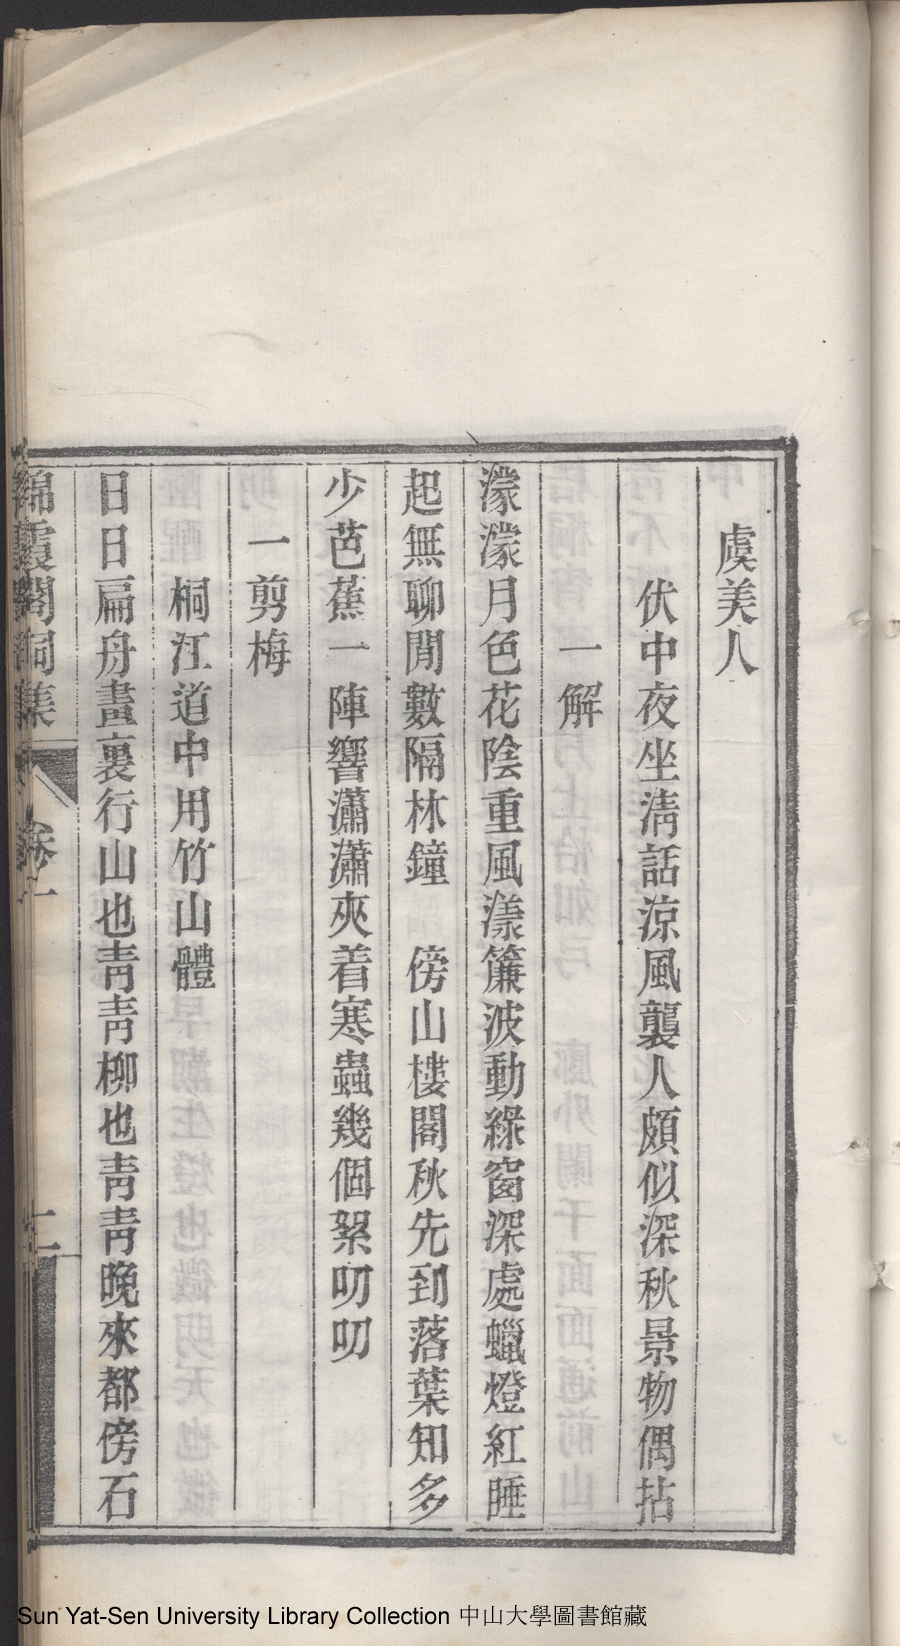 虞美人
伏中夜坐淸話涼風襲人頗似深秋景物偶拈
一解
濛濛月色花陰重風漾簾波動綠窗深處蠟燈紅睡
起無聊閒數隔林鐘　傍山樓閣秋先到落葉知多
少芭蕉一陣響瀟瀟夾着寒蟲幾個絮叨叨
一剪梅
桐江道中用竹山體
日日扁舟畫裏行山也靑靑柳也靑靑晚來都傍石
錦霞閣詞集
卷一
Sun Yat-Sen University Library Collection 中山大學圖書館藏